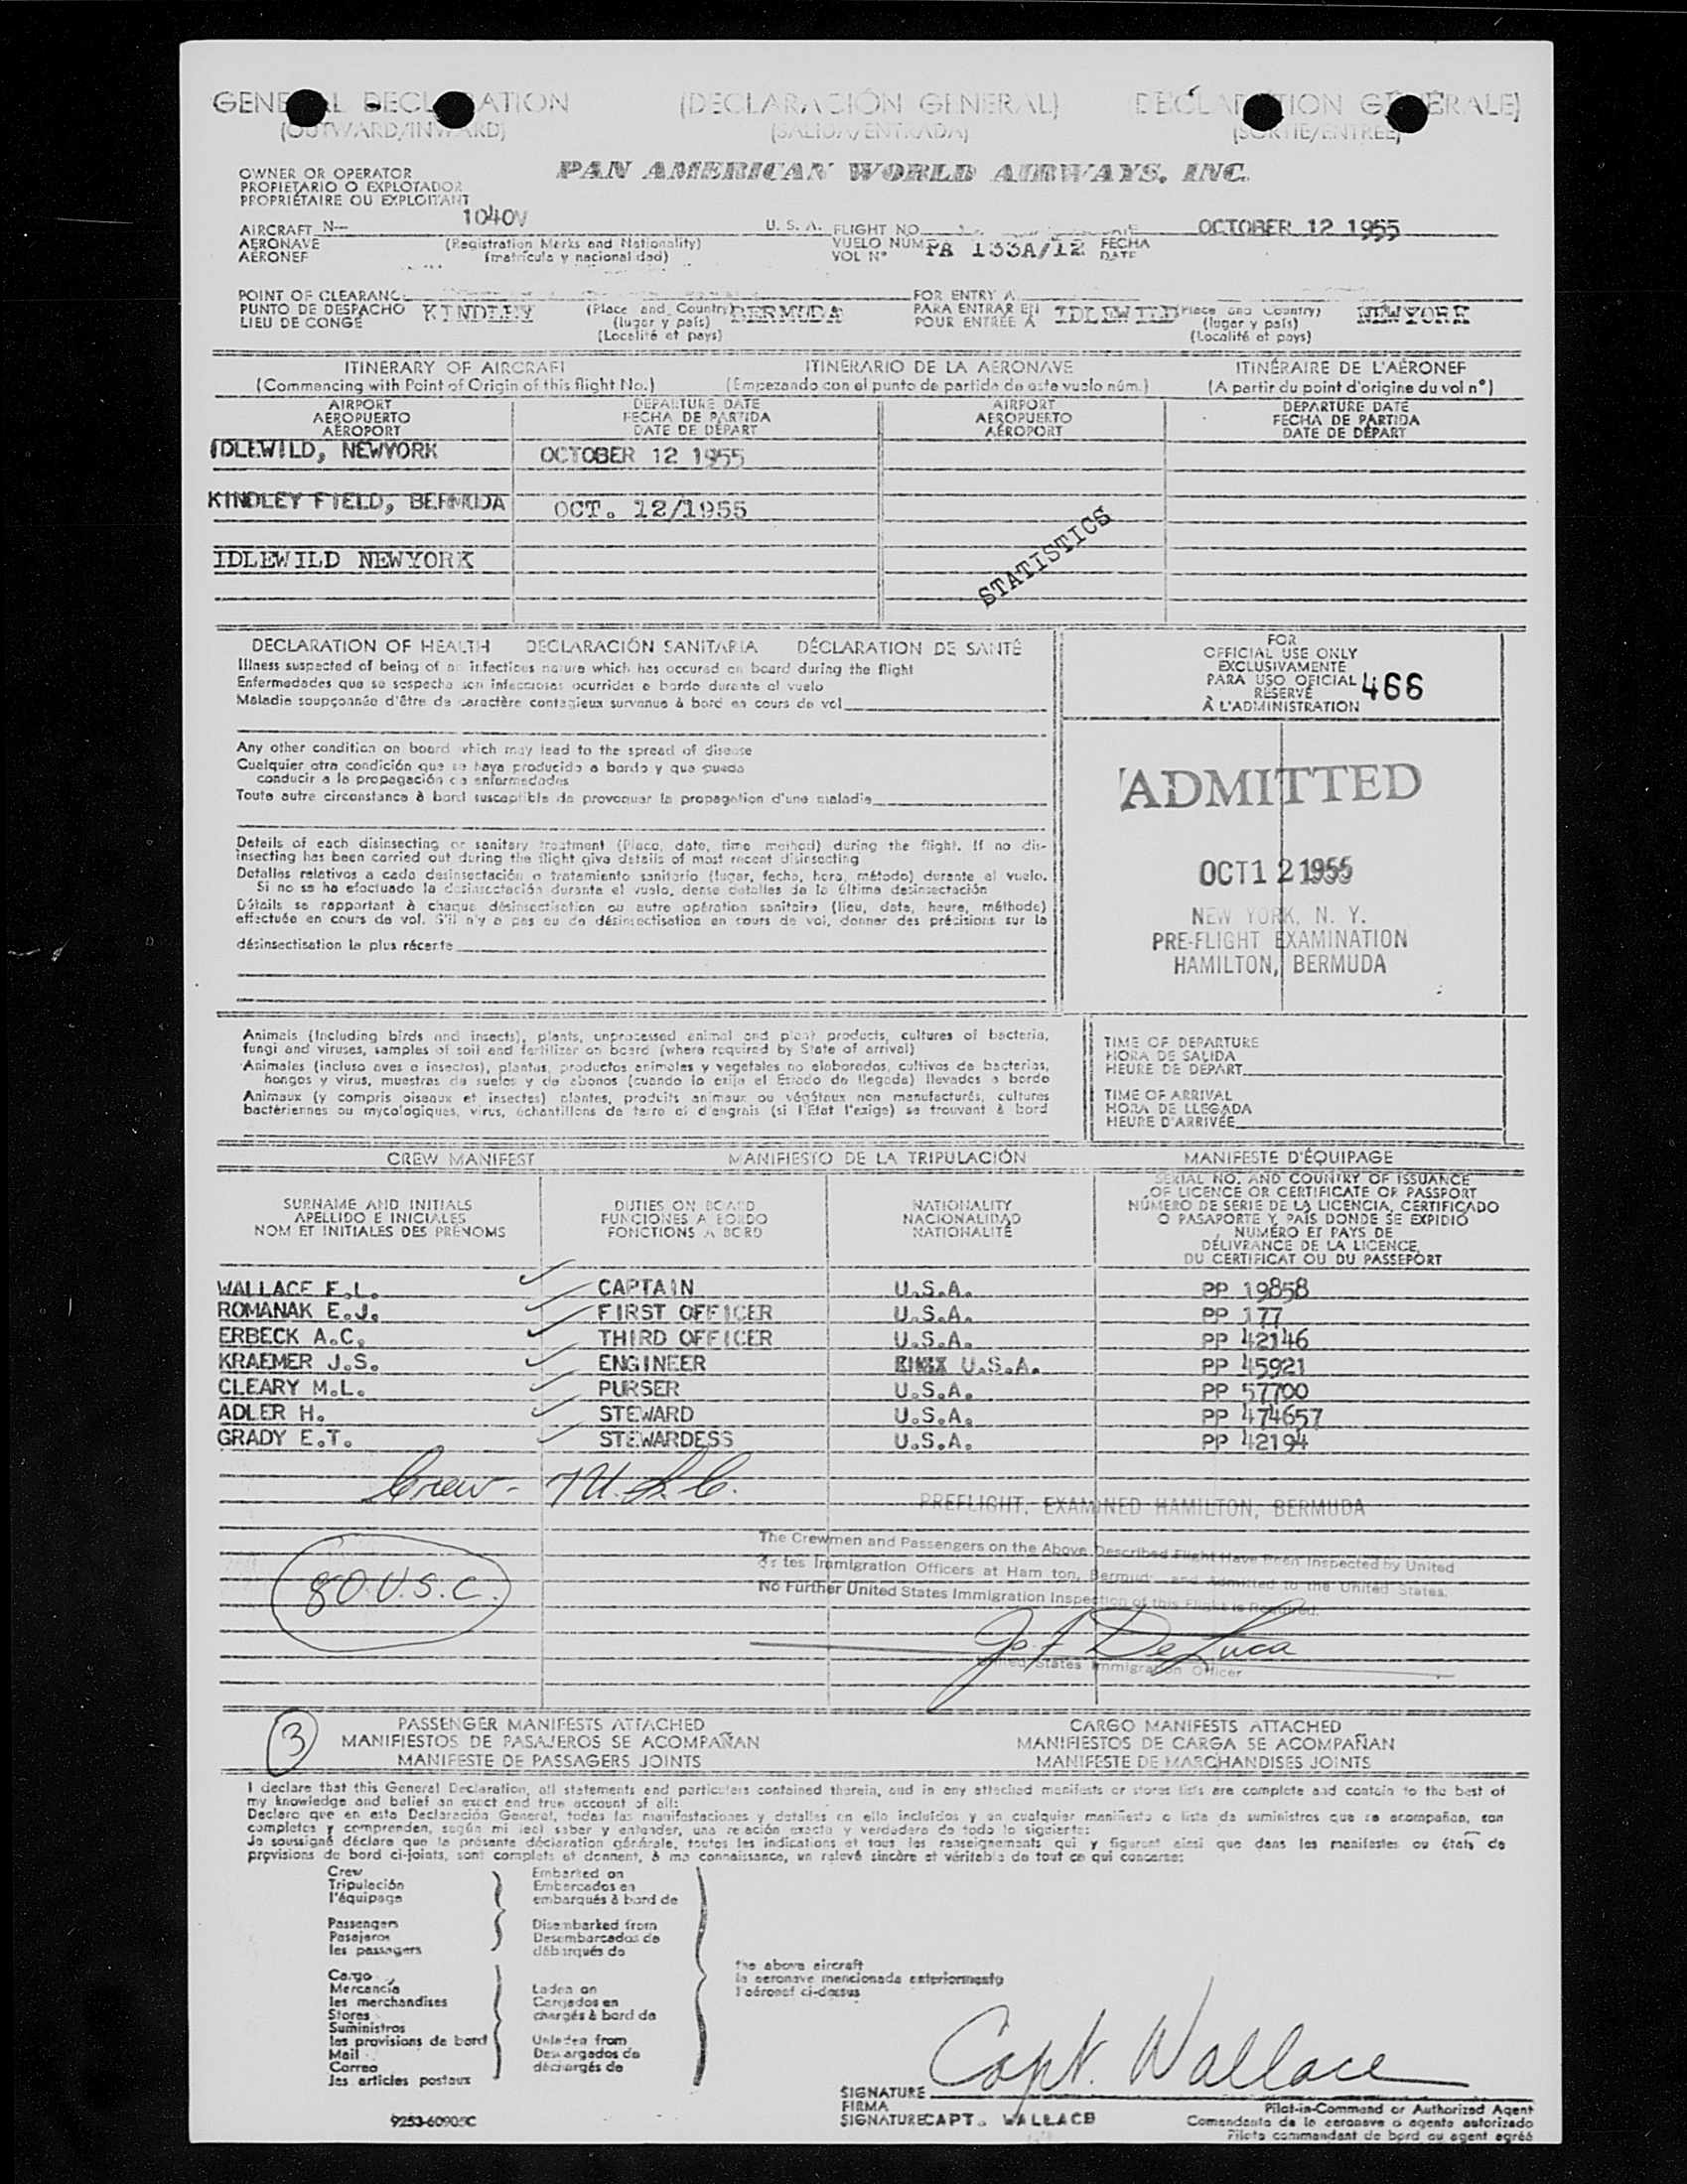 GENERAL DECLARATION (DECLARACIÓN GENERAL) DÉCLARATION GÉNÉRALE)
(OUTWARD/INWARD) (SALIDA/ENTRADA) (SORTIE/ENTREE)
OWNER OR OPERATOR
PROPIETARIO O EXPLOTADOR
PROPRIÉTAIRE OU EXPLOITANT
PAN AMERICAN WORLD AIRWAYS, INC.
AIRCRAFT N— 1040V U. S. A. FLIGHT NO. DATE OCTOBER 12 1955
AERONAVE (Registration Marks and Nationality) VUELO NUM PA 133A/12 FECHA
AÉRONEF (matrícula y nacionalidad) VOL N° DATE
POINT OF CLEARANCE FOR ENTRY AT
PUNTO DE DESPACHO KINDLEY (Place and Country) BERMUDA PARA ENTRAR EN IDLEWILD (Place and Country) NEWYORK
LIEU DE CONGÉ (lugar y país) POUR ENTRÉE À (lugar y país)
(Localité et pays) (Localité et pays)
ITINERARY OF AIRCRAFT ITINERARIO DE LA AERONAVE ITINÉRAIRE DE L'AÉRONEF
(Commencing with Point of Origin of this flight No.) (Empezando con el punto de partida de este vuelo núm.) (A partir du point d'origine du vol n°)
AIRPORT DEPARTURE DATE AIRPORT DEPARTURE DATE
AEROPUERTO FECHA DE PARTIDA AEROPUERTO FECHA DE PARTIDA
AÉROPORT DATE DE DÉPART AÉROPORT DATE DE DÉPART
IDLEWILD, NEWYORK OCTOBER 12 1955
KINDLEY FIELD, BERMUDA OCT. 12/1955
STATISTICS
IDLEWILD NEWYORK
DECLARATION OF HEALTH DECLARACIÓN SANITARIA DÉCLARATION DE SANTÉ
Illness suspected of being of an infectious nature which has occured on board during the flight
Enfermedades que se sospecha son infecciosas ocurridas a bordo durante el vuelo
Maladie soupçonnée d'être de caractère contagieux survenue à bord en cours de vol
FOR
OFFICIAL USE ONLY
EXCLUSIVAMENTE
PARA USO OFICIAL 466
RESERVÉ
À L'ADMINISTRATION
Any other condition on board which may lead to the spread of disease
Cualquier otra condición que se haya producido a bordo y que pueda
conducir a la propagación de enfermedades
Toute autre circonstance à bord susceptible de provoquer la propagation d'une maladie
ADMITTED
OCT 12 1955
NEW YORK, N. Y.
PRE-FLIGHT EXAMINATION
HAMILTON, BERMUDA
Details of each disinsecting or sanitary treatment (Place, date, time method) during the flight. If no dis-
insecting has been carried out during the flight give details of most recent disinsecting
Detalles relativos a cada desinsectación o tratamiento sanitario (lugar, fecha, hora, método) durante el vuelo.
Si no se ha efectuado la desinsectación durante el vuelo, dense detalles de la última desinsectación
Détails se rapportant à chaque désinsectisation ou autre opération sanitaire (lieu, date, heure, méthode)
effectuée en cours de vol. S'il n'y a pas eu de désinsectisation en cours de vol, donner des précisions sur la
désinsectisation la plus récente
Animals (Including birds and insects), plants, unprocessed animal and plant products, cultures of bacteria,
fungi and viruses, samples of soil and fertilizer on board (where required by State of arrival)
Animales (incluso aves e insectos), plantas, productos animales y vegetales no elaborados, cultivos de bacterias,
hongos y virus, muestras de suelos y de abonos (cuando lo exija el Estado de llegada) llevados a bordo
Animaux (y compris oiseaux et insectes) plantes, produits animaux ou végétaux non manufacturés, cultures
bactériennes ou mycologiques, virus, échantillons de terre et d'engrais (si l'État l'exige) se trouvant à bord
TIME OF DEPARTURE
HORA DE SALIDA
HEURE DE DÉPART
TIME OF ARRIVAL
HORA DE LLEGADA
HEURE D'ARRIVÉE
CREW MANIFEST MANIFIESTO DE LA TRIPULACIÓN MANIFESTE D'ÉQUIPAGE
SURNAME AND INITIALS
APELLIDO E INICIALES
NOM ET INITIALES DES PRÉNOMS
DUTIES ON BOARD
FUNCIONES A BORDO
FONCTIONS A BORD
NATIONALITY
NACIONALIDAD
NATIONALITÉ
SERIAL NO. AND COUNTRY OF ISSUANCE
OF LICENCE OR CERTIFICATE OR PASSPORT
NÚMERO DE SERIE DE LA LICENCIA, CERTIFICADO
O PASAPORTE Y PAÍS DONDE SE EXPIDIÓ
NUMÉRO ET PAYS DE
DÉLIVRANCE DE LA LICENCE,
DU CERTIFICAT OU DU PASSEPORT
WALLACE E.L. CAPTAIN U.S.A. PP 19858
ROMANAK E.J. FIRST OFFICER U.S.A. PP 177
ERBECK A.C. THIRD OFFICER U.S.A. PP 42146
KRAEMER J.S. ENGINEER U.S.A. PP 45921
CLEARY M.L. PURSER U.S.A. PP 57700
ADLER H. STEWARD U.S.A. PP 474657
GRADY E.T. STEWARDESS U.S.A. PP 42194
Crew - 7 U.S.C.
PREFLIGHT, EXAMINED HAMILTON, BERMUDA
The Crewmen and Passengers on the Above Described Flight Have Been Inspected by United
States Immigration Officers at Hamilton, Bermuda and Admitted to the United States.
No Further United States Immigration Inspection of this Flight is Required.
80 U.S.C.
De Luca
United States Immigration Officer
3
PASSENGER MANIFESTS ATTACHED CARGO MANIFESTS ATTACHED
MANIFIESTOS DE PASAJEROS SE ACOMPAÑAN MANIFIESTOS DE CARGA SE ACOMPAÑAN
MANIFESTE DE PASSAGERS JOINTS MANIFESTE DE MARCHANDISES JOINTS
I declare that this General Declaration, all statements and particulars contained therein, and in any attached manifests or stores lists are complete and contain to the best of
my knowledge and belief an exact and true account of all:
Declaro que en esta Declaración General, todas las manifestaciones y detalles en ella incluidos y en cualquier manifiesto o lista de suministros que se acompañan, son
completos y comprenden, según mi leal saber y entender, una relación exacta y verdadera de todo lo siguiente:
Je soussigné déclare que la présente déclaration générale, toutes les indications et tous les renseignements qui y figurent ainsi que dans les manifestes ou états de
provisions de bord ci-joints, sont complets et donnent, à ma connaissance, un relevé sincère et véritable de tout ce qui concerne:
Crew
Tripulación
l'équipage
Embarked on
Embarcados en
embarqués à bord de
Passengers
Pasajeros
les passagers
Disembarked from
Desembarcados de
débarqués de
the above aircraft
la aeronave mencionada anteriormente
l'aéronef ci-dessus
Cargo
Mercancía
les merchandises
Stores
Suministros
les provisions de bord
Mail
Correo
les articles postaux
Laden on
Cargados en
chargés à bord de
Unladen from
Descargados de
déchargés de
Capt. Wallace
SIGNATURE
FIRMA
SIGNATURE CAPT. WALLACE
Pilot-in-Command or Authorized Agent
Comandante de la aeronave o agente autorizado
Pilote commandant de bord ou agent agréé
9253-60905C